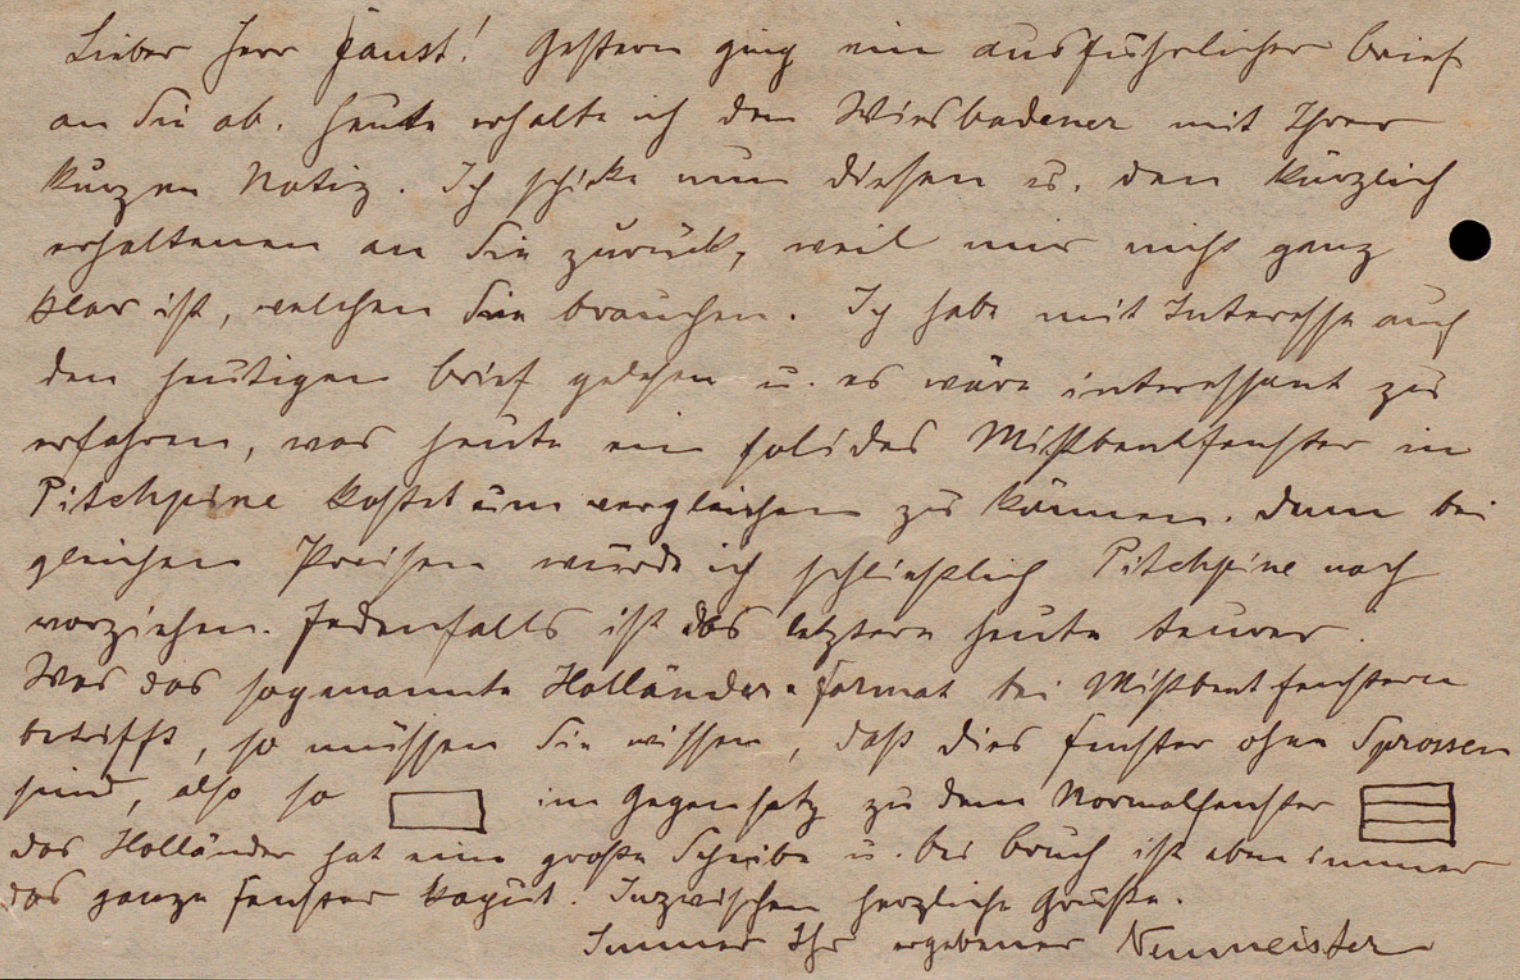 Lieber Herr Faust! Gestern ging ein ausführlicher Brief
an Sie ab. Heute erhalte ich den Wiesbadener mit Ihrer
kurzen Notiz. Ich schicke nun diesen u. den kürzlich
erhaltenen an Sie zurück, weil mir nicht ganz
klar ist, welchen Sie brauchen. Ich habe mit Interesse auch
den heutigen Brief gelesen u. es wäre interessant zu
erfahren, was heute ein solides Mistbeetfenster in
Pitchpine kostet um vergleichen zu können. Denn bei
gleichen Preisen würde ich schließlich Pitchpine noch
vorziehen. Jedenfalls ist das letztere heute teurer.
Was das sogenannte Holländer-Format bei Mistbeetfenstern
betrifft, so müssen Sie wissen, daß dies Fenster ohne Sprossen
sind, also so im Gegensatz zu dem Normalfenster
das Holländer hat eine große Scheibe u. bei Bruch ist eben immer
das ganze Fenster kaput. Inzwischen herzliche Grüße.
Immer Ihr ergebener Neumeister